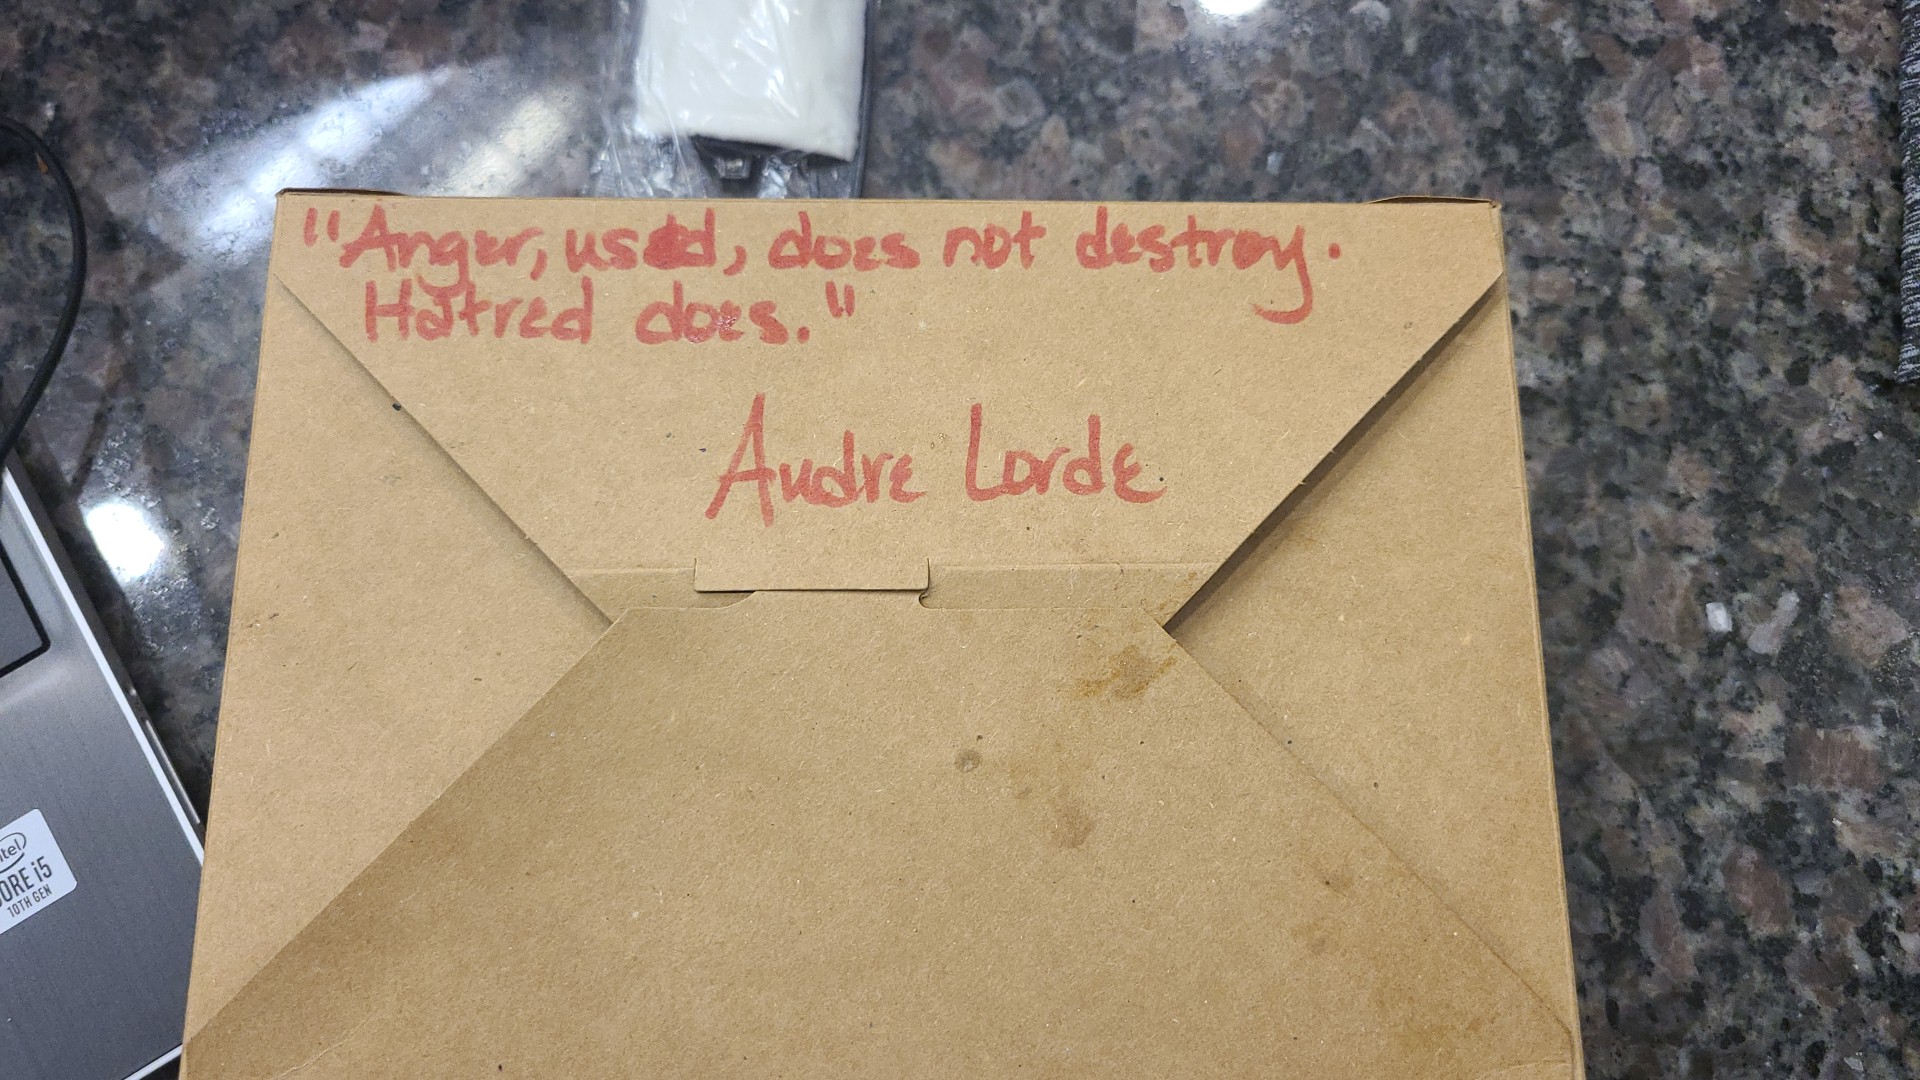 "Anger, used, does not destroy.
Hatred does."
Audre Lorde
CORE i5
10TH GEN